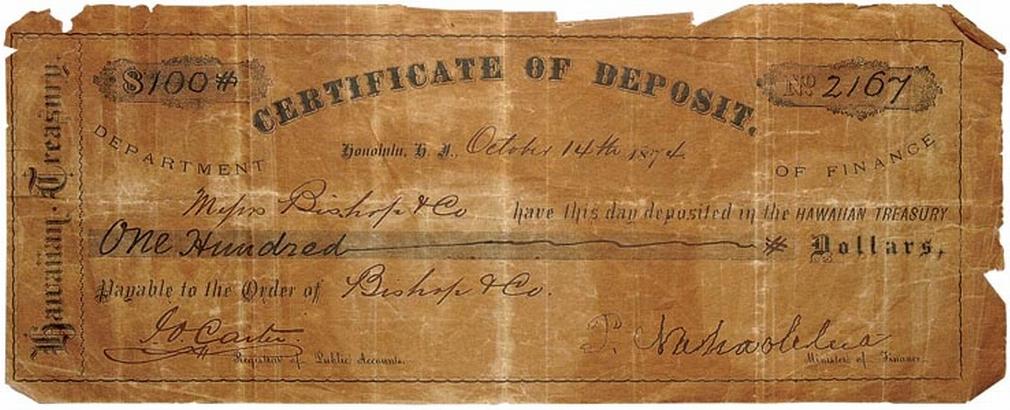 Hawaiian Treasury
$100 #
CERTIFICATE OF DEPOSIT.
No 2167
DEPARTMENT OF FINANCE
Honolulu, H. I., October 14th 1874
Messrs Bishop & Co have this day deposited in the HAWAIIAN TREASURY
One Hundred # Dollars,
Payable to the Order of Bishop & Co.
J. O. Carter
Registrar of Public Accounts.
P. Nahaolelua
Minister of Finance.